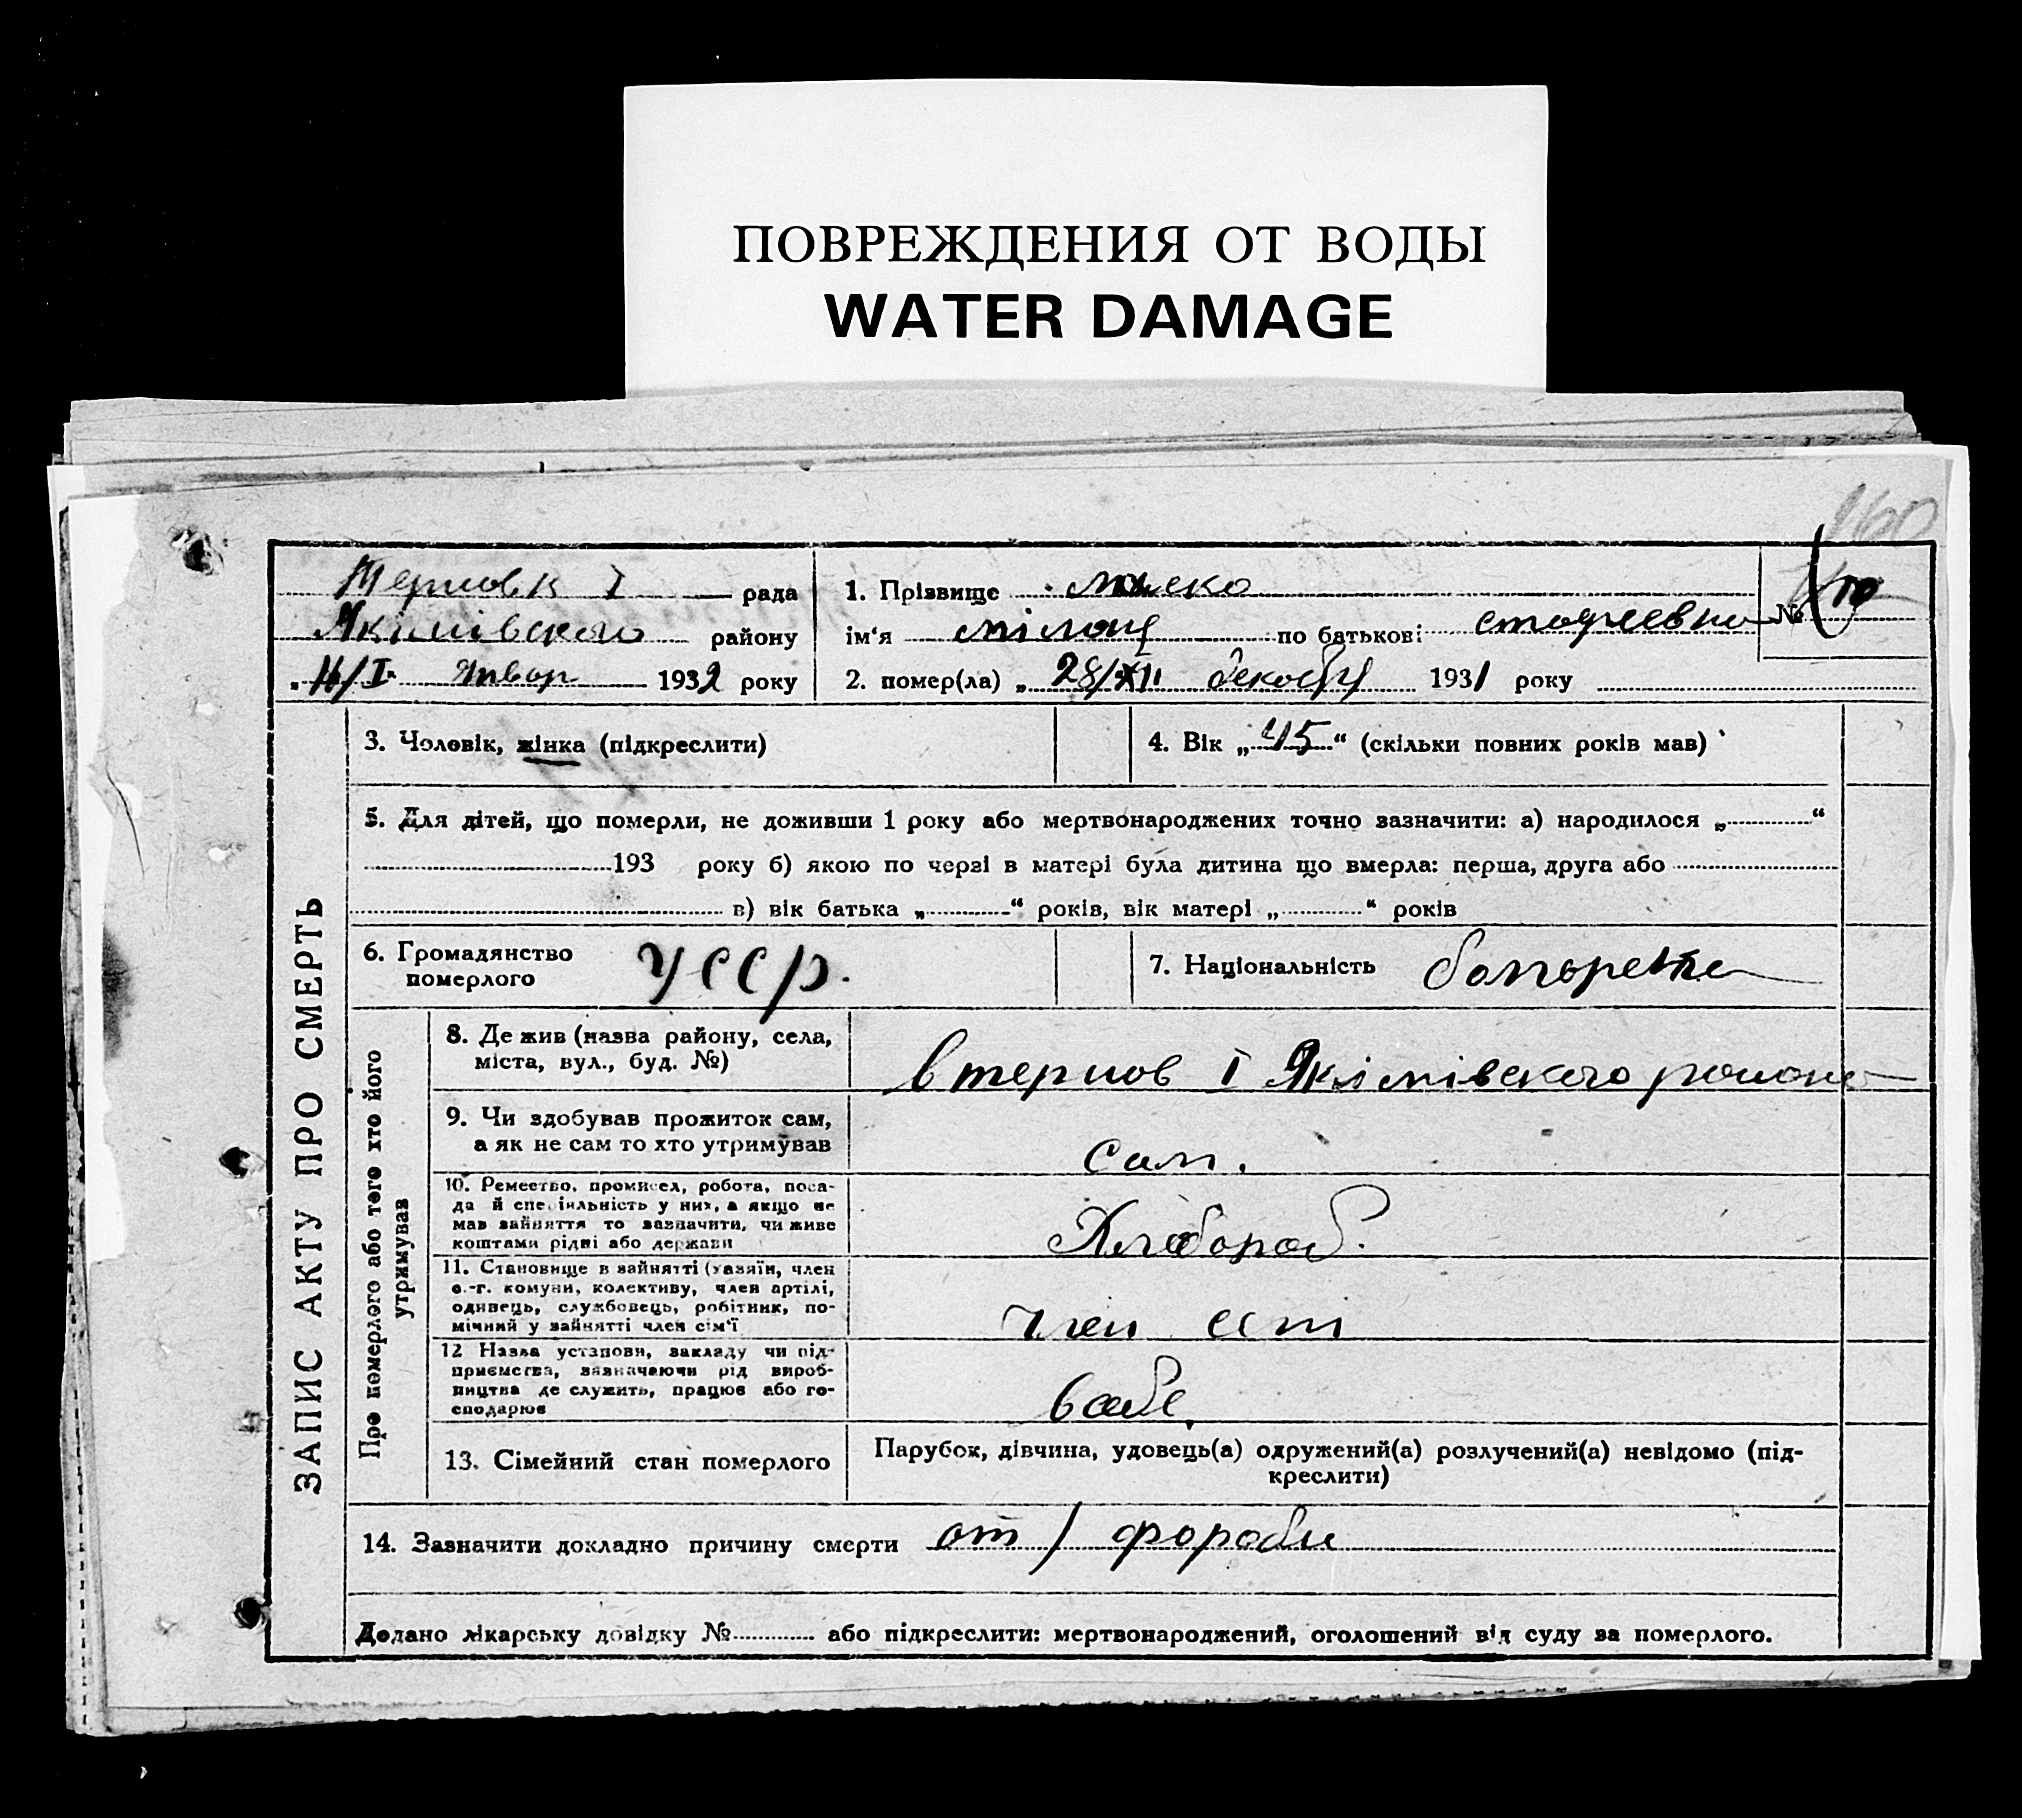 ПОВРЕЖДЕНИЯ ОТ ВОДЫ
WATER DAMAGE
160
Тернов к I рада
Якімівського району
"11/I" Январ 1932 року
1. Прізвище
ім‘я по батькові №
2. помер(ла) „28/XII декабря 1931 року
ЗАПИС АКТУ ПРО СМЕРТЬ
3. Чоловік, жінка (підкреслити)
4. Вік „45“ (скільки повних років мав)
5. Для дітей, що померли, не доживши 1 року або мертвонароджених точно зазначити: а) народилося „ “
193 року б) якою по черзі в матері була дитина що вмерла: перша, друга або
в) вік батька „ “ років, вік матері „ “ років
6. Громадянство
померлого
УССР.
7. Національність болгарка
Про померлого або того хто його
утримував
8. Де жив (назва району, села,
міста, вул., буд. №)
в тернов I Якімівского района
9. Чи здобував прожиток сам,
а як не сам то хто утримував
сам.
10. Ремество, промисел, робота, поса-
да й спеціяльність у них, а якщо не
мав зайняття то зазначити, чи живе
коштами рідні або держави
Хлібороб.
11. Становище в зайнятті (хазяїн, член
с.-г. комуни, колективу, член артілі,
одинець, службовець, робітник, по-
мічний у зайнятті член сім‘ї
член
12 Назва установи, закладу чи під-
приємства, зазначаючи рід вироб-
ництва де служить, працює або го-
сподарює
13. Сімейний стан померлого
Парубок, дівчина, удовець(а) одружений(а) розлучений(а) невідомо (під-
креслити)
14. Зазначити докладно причину смерти от
Додано лікарську довідку № або підкреслити: мертвонароджений, оголошений від суду за померлого.